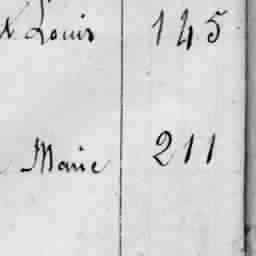 Louis 145
Marie 211